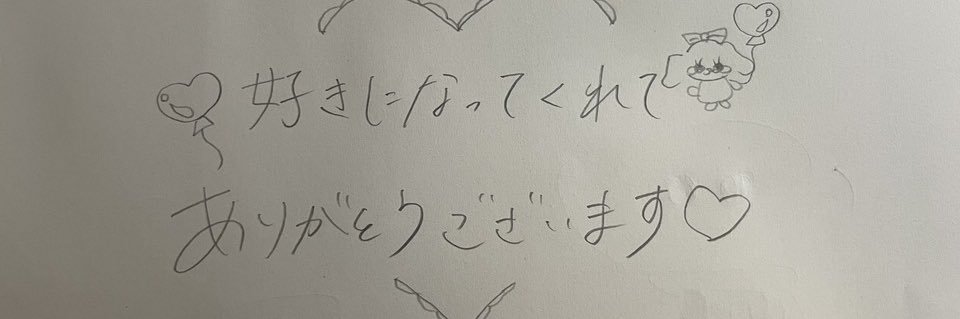 好きになってくれて
ありがとうございます♡